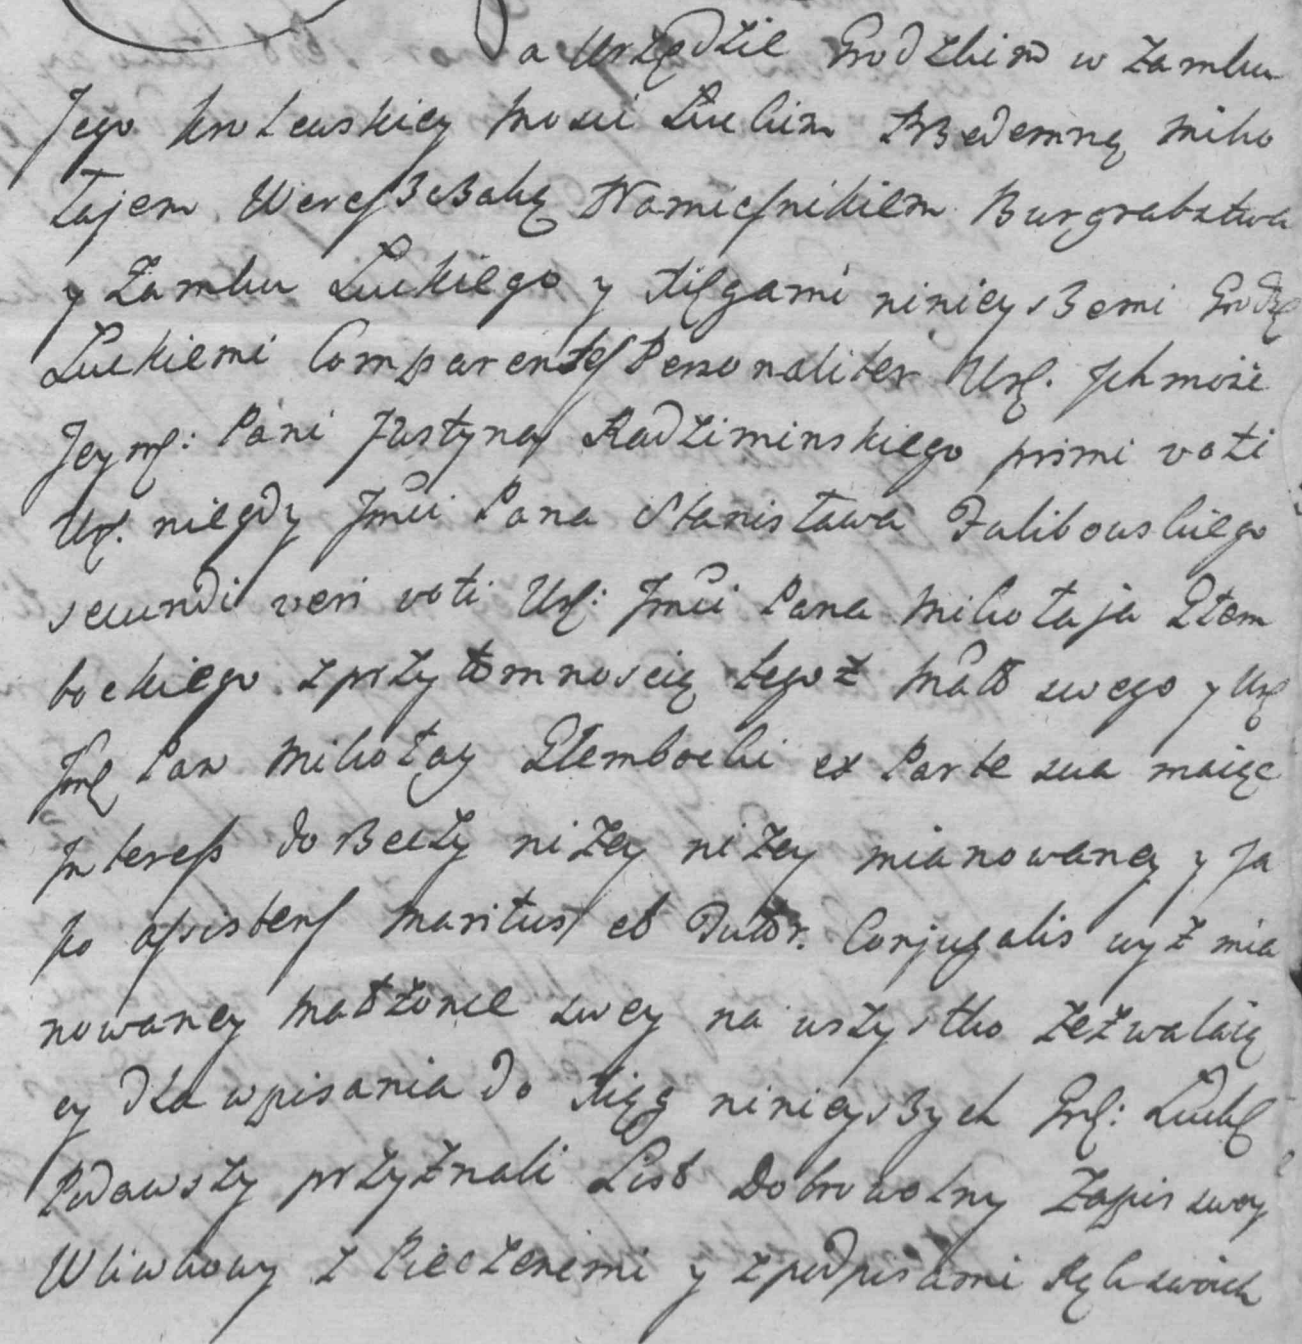 Na Urzędzie Grodzkim w Zamku
Jego Krolewskiey Mosci Luckim Przedemną Miko
łajem Wereszczaką Namiesnikiem Burgrabstwa
y Zamku Luckiego y Xięgami ninieyszemi Grodz
Luckiemi Comparentes Personaliter Ur. Ichmosc
Jeym: Pani Justyna Radziminskiego primi voti
Ur. niegdy Jmci Pana Stanisława Falibowskiego
secundi veri voti Ur: Jmci Pana Mikołaja Głem
bockiego z przytomnoscią tegoż Małż swego y Ur
Jm Pan Mikołay Głembocki ex Parte sua maiąc
Interess do Rzeczy niżey niżey mianowaney y Ja
ko assistens Maritus et Tutor Conjugalis wyż mia
nowaney Małżonce swey na wszystko zezwalaią
cy dla wpisania do Xiąg ninieyszych Gr: Luck
Podawszy przyznali List Dobrowolny Zapis swoy
Wliwkowy z Pieczęnemi y z podpisami Rąk swoich